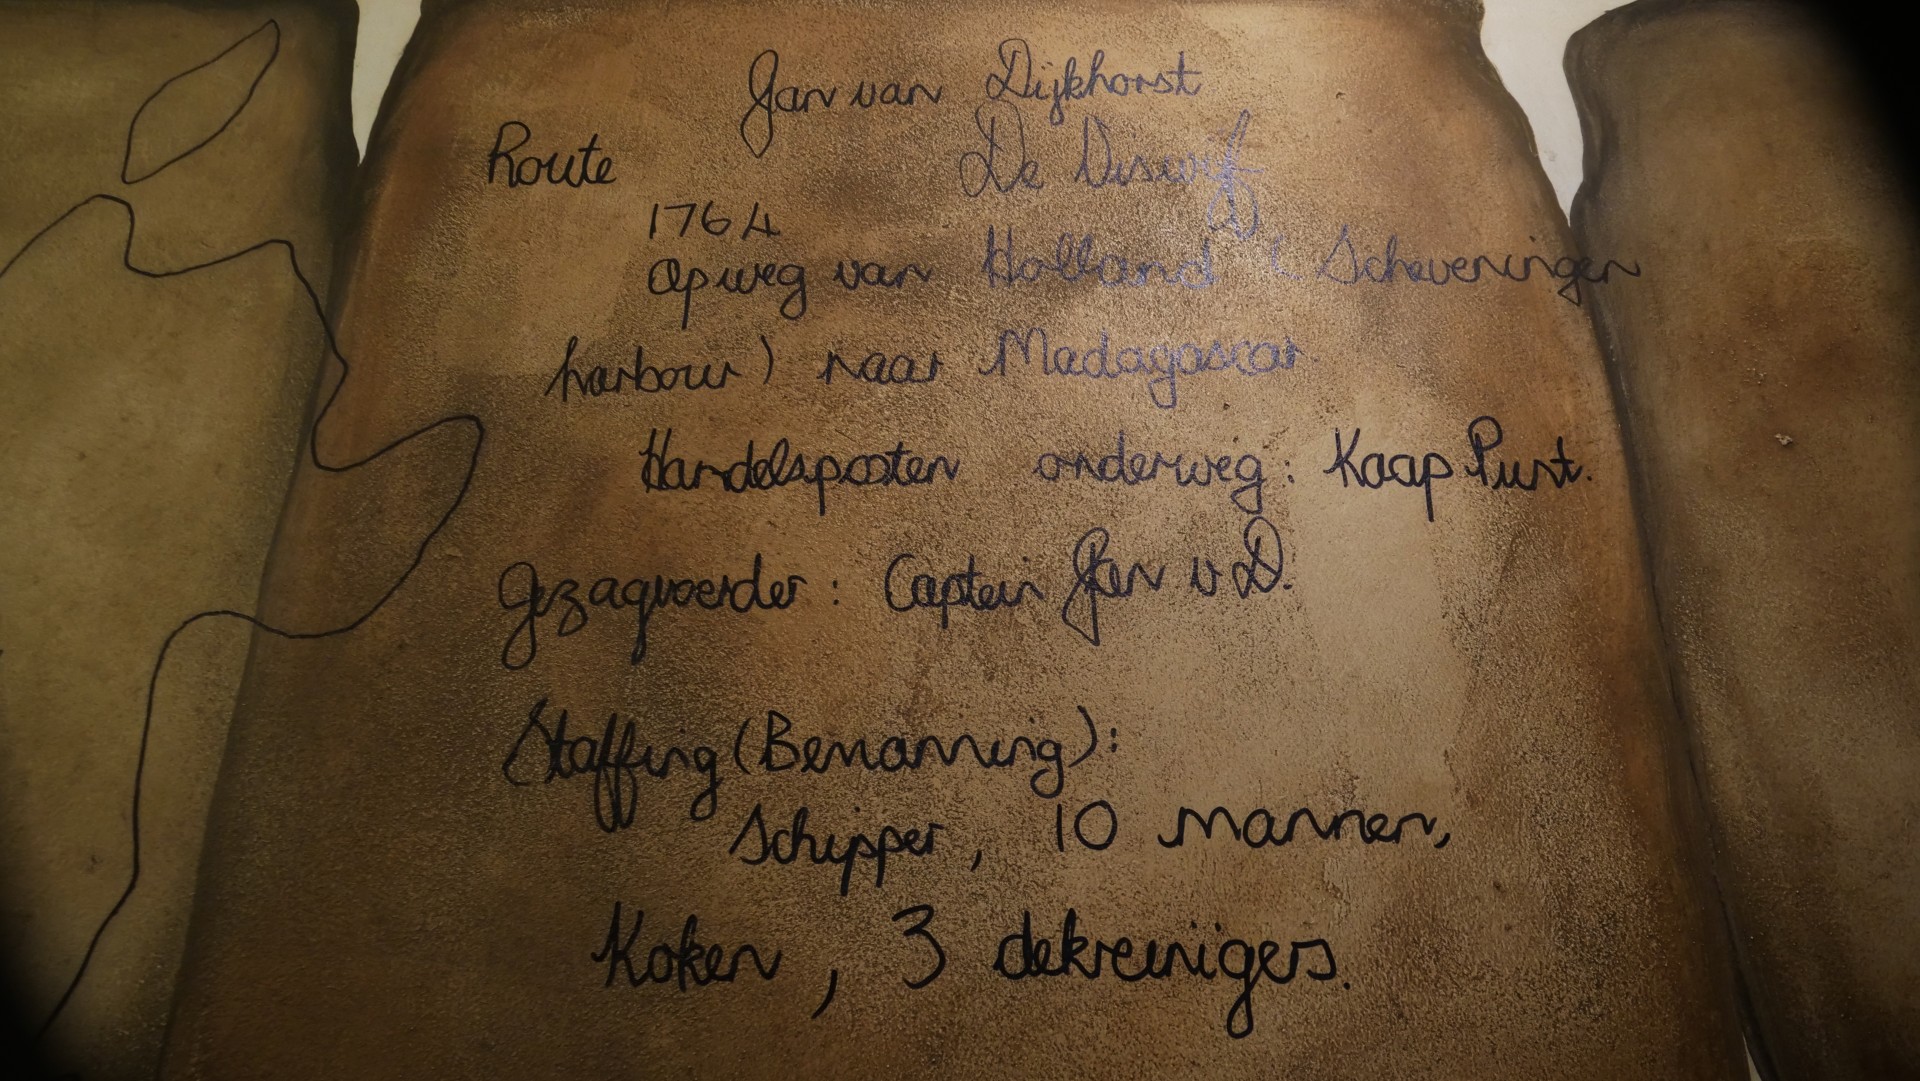 Jan van Dijkhorst
Route De Viswijf
1764
Op weg van Holland ( Scheveningen
harbour) naar Madagascar.
Handelsposten onderweg: Kaap Punt.
Gezagvoerder: Captein Jan v D.
Staffing (Bemanning):
Schipper, 10 mannen,
Koken, 3 dekreinigers.